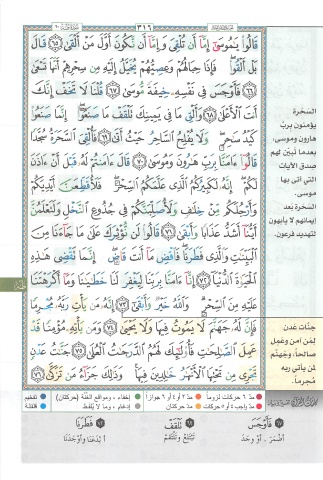 ٣١٦
قَالُوا۟ يَـٰمُوسَىٰٓ إِمَّآ أَن تُلْقِىَ وَإِمَّآ أَن نَّكُونَ أَوَّلَ مَنْ أَلْقَىٰ ٦٥ قَالَ
بَلْ أَلْقُوا۟ فَإِذَا حِبَالُهُمْ وَعِصِيُّهُمْ يُخَيَّلُ إِلَيْهِ مِن سِحْرِهِمْ أَنَّهَا تَسْعَىٰ
٦٦ فَأَوْجَسَ فِى نَفْسِهِۦ خِيفَةً مُّوسَىٰ ٦٧ قُلْنَا لَا تَخَفْ إِنَّكَ
أَنتَ ٱلْأَعْلَىٰ ٦٨ وَأَلْقِ مَا فِى يَمِينِكَ تَلْقَفْ مَا صَنَعُوٓا۟ إِنَّمَا صَنَعُوا۟
كَيْدُ سَـٰحِرٍ وَلَا يُفْلِحُ ٱلسَّاحِرُ حَيْثُ أَتَىٰ ٦٩ فَأُلْقِىَ ٱلسَّحَرَةُ سُجَّدًا
قَالُوٓا۟ ءَامَنَّا بِرَبِّ هَـٰرُونَ وَمُوسَىٰ ٧٠ قَالَ ءَامَنتُمْ لَهُۥ قَبْلَ أَنْ ءَاذَنَ
لَكُمْ إِنَّهُۥ لَكَبِيرُكُمُ ٱلَّذِى عَلَّمَكُمُ ٱلسِّحْرَ فَلَأُقَطِّعَنَّ أَيْدِيَكُمْ
وَأَرْجُلَكُم مِّنْ خِلَـٰفٍ وَلَأُصَلِّبَنَّكُمْ فِى جُذُوعِ ٱلنَّخْلِ وَلَتَعْلَمُنَّ
أَيُّنَآ أَشَدُّ عَذَابًا وَأَبْقَىٰ ٧١ قَالُوا۟ لَن نُّؤْثِرَكَ عَلَىٰ مَا جَآءَنَا مِنَ
ٱلْبَيِّنَـٰتِ وَٱلَّذِى فَطَرَنَا فَٱقْضِ مَآ أَنتَ قَاضٍ إِنَّمَا تَقْضِى هَـٰذِهِ
ٱلْحَيَوٰةَ ٱلدُّنْيَآ ٧٢ إِنَّآ ءَامَنَّا بِرَبِّنَا لِيَغْفِرَ لَنَا خَطَـٰيَـٰنَا وَمَآ أَكْرَهْتَنَا
عَلَيْهِ مِنَ ٱلسِّحْرِ وَٱللَّهُ خَيْرٌ وَأَبْقَىٰٓ ٧٣ إِنَّهُۥ مَن يَأْتِ رَبَّهُۥ مُجْرِمًا
فَإِنَّ لَهُۥ جَهَنَّمَ لَا يَمُوتُ فِيهَا وَلَا يَحْيَىٰ ٧٤ وَمَن يَأْتِهِۦ مُؤْمِنًا قَدْ
عَمِلَ ٱلصَّـٰلِحَـٰتِ فَأُو۟لَـٰٓئِكَ لَهُمُ ٱلدَّرَجَـٰتُ ٱلْعُلَىٰ ٧٥ جَنَّـٰتُ عَدْنٍ
تَجْرِى مِن تَحْتِهَا ٱلْأَنْهَـٰرُ خَـٰلِدِينَ فِيهَا وَذَٰلِكَ جَزَآءُ مَن تَزَكَّىٰ ٧٦
السّحَرة
يؤمنون بربّ
هارون وموسى،
بعدما تبيّن لهم
صدق الآيات
التي أتى بها
موسى.
السّحَرة بعد
إيمانهم لا يأبهون
لتهديد فرعون.
جنّات عدن
لِمَن آمن وعَمِل
صالحاً، وجهنّم
لمن يأتي ربه
مُجرماً.
مدّ ٦ حركات لزوماً مدّ ٢ أو ٤ أو ٦ جوازاً إخفاء، ومواقع الغُنَّة (حركتان) تفخيم
مدّ واجب ٤ أو ٥ حركات مدّ حركتان إدغام، وما لا يُلفَظ قلقلة
٦٧ فَأَوْجَسَ
أضْمَرَ. أوْ وَجَدَ
٦٩ تَلْقَفْ
تَبْتَلِعْ وتَلْتَقِمْ
٧٢ فَطَرَنَا
أبْدَعَنَا وأوْجَدَنَا